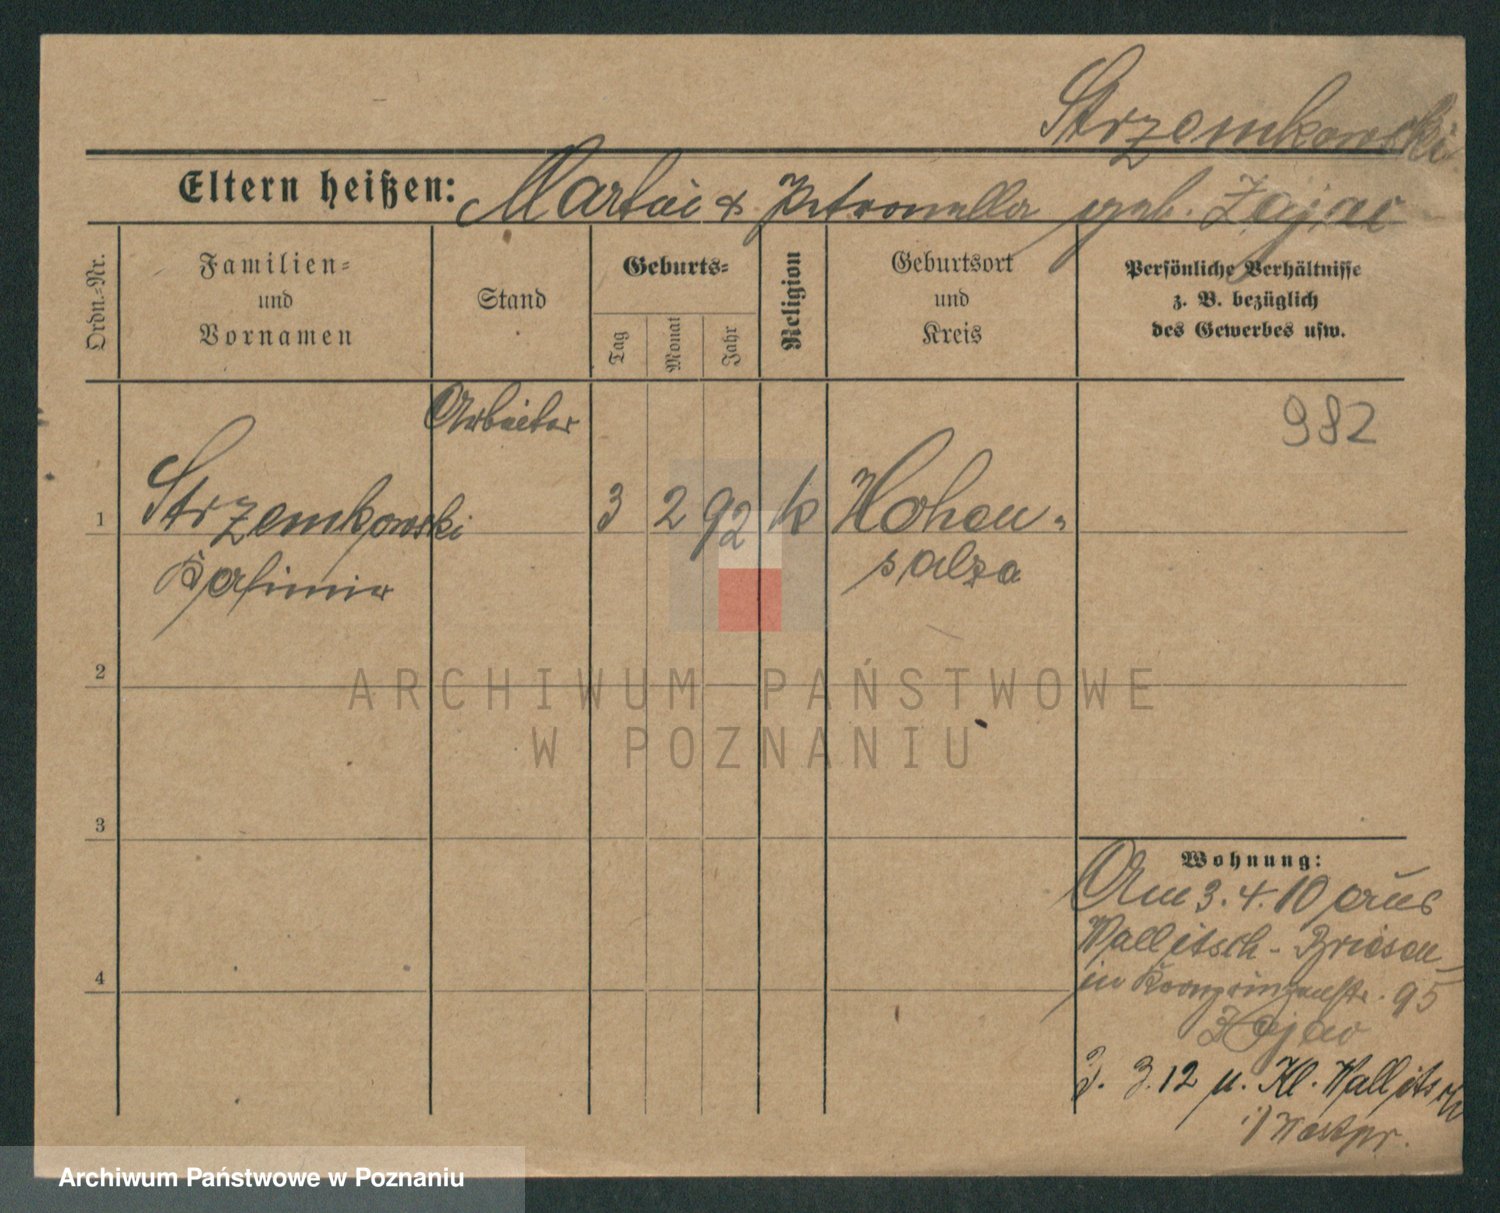 Strzemkowski
Eltern heißen: Martin & Petronella geb. Zajac
Ordn.-Nr.
Familien-
und
Vornamen
Stand
Geburts-
Tag
Monat
Jahr
Religion
Geburtsort
und
Kreis
Persönliche Verhältnisse
z. B. bezüglich
des Gewerbes usw.
Arbeiter
982
1 Strzemkowski 3 2 92 k Hohen-
Kasimir salza
2
3
4
Wohnung:
Am 3.4.10 aus
Wallitsch - Briesen
in Kronprinzenstr. 95
Zajac
3. 3.12 n. Kl. Wallitsch
i/ Westpr.
ARCHIWUM PAŃSTWOWE
W POZNANIU
Archiwum Państwowe w Poznaniu